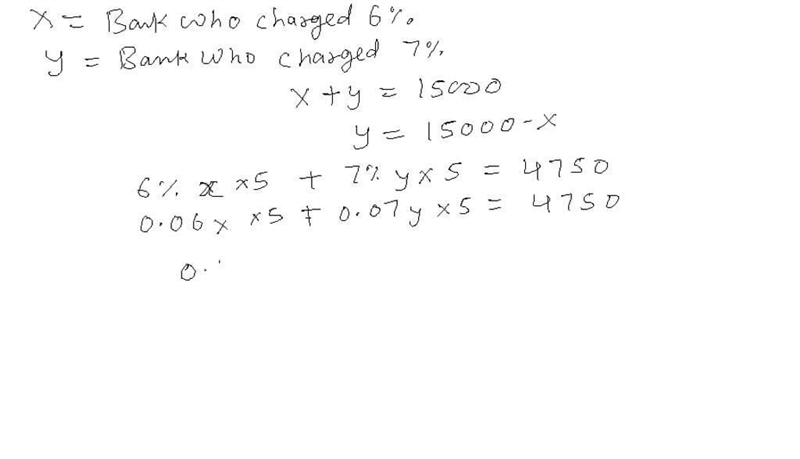 x = Bank who charged 6%.
y = Bank who charged 7%.
x + y = 15000
y = 15000 - x
6% x × 5 + 7% y × 5 = 4750
0.06x × 5 + 0.07y × 5 = 4750
0.